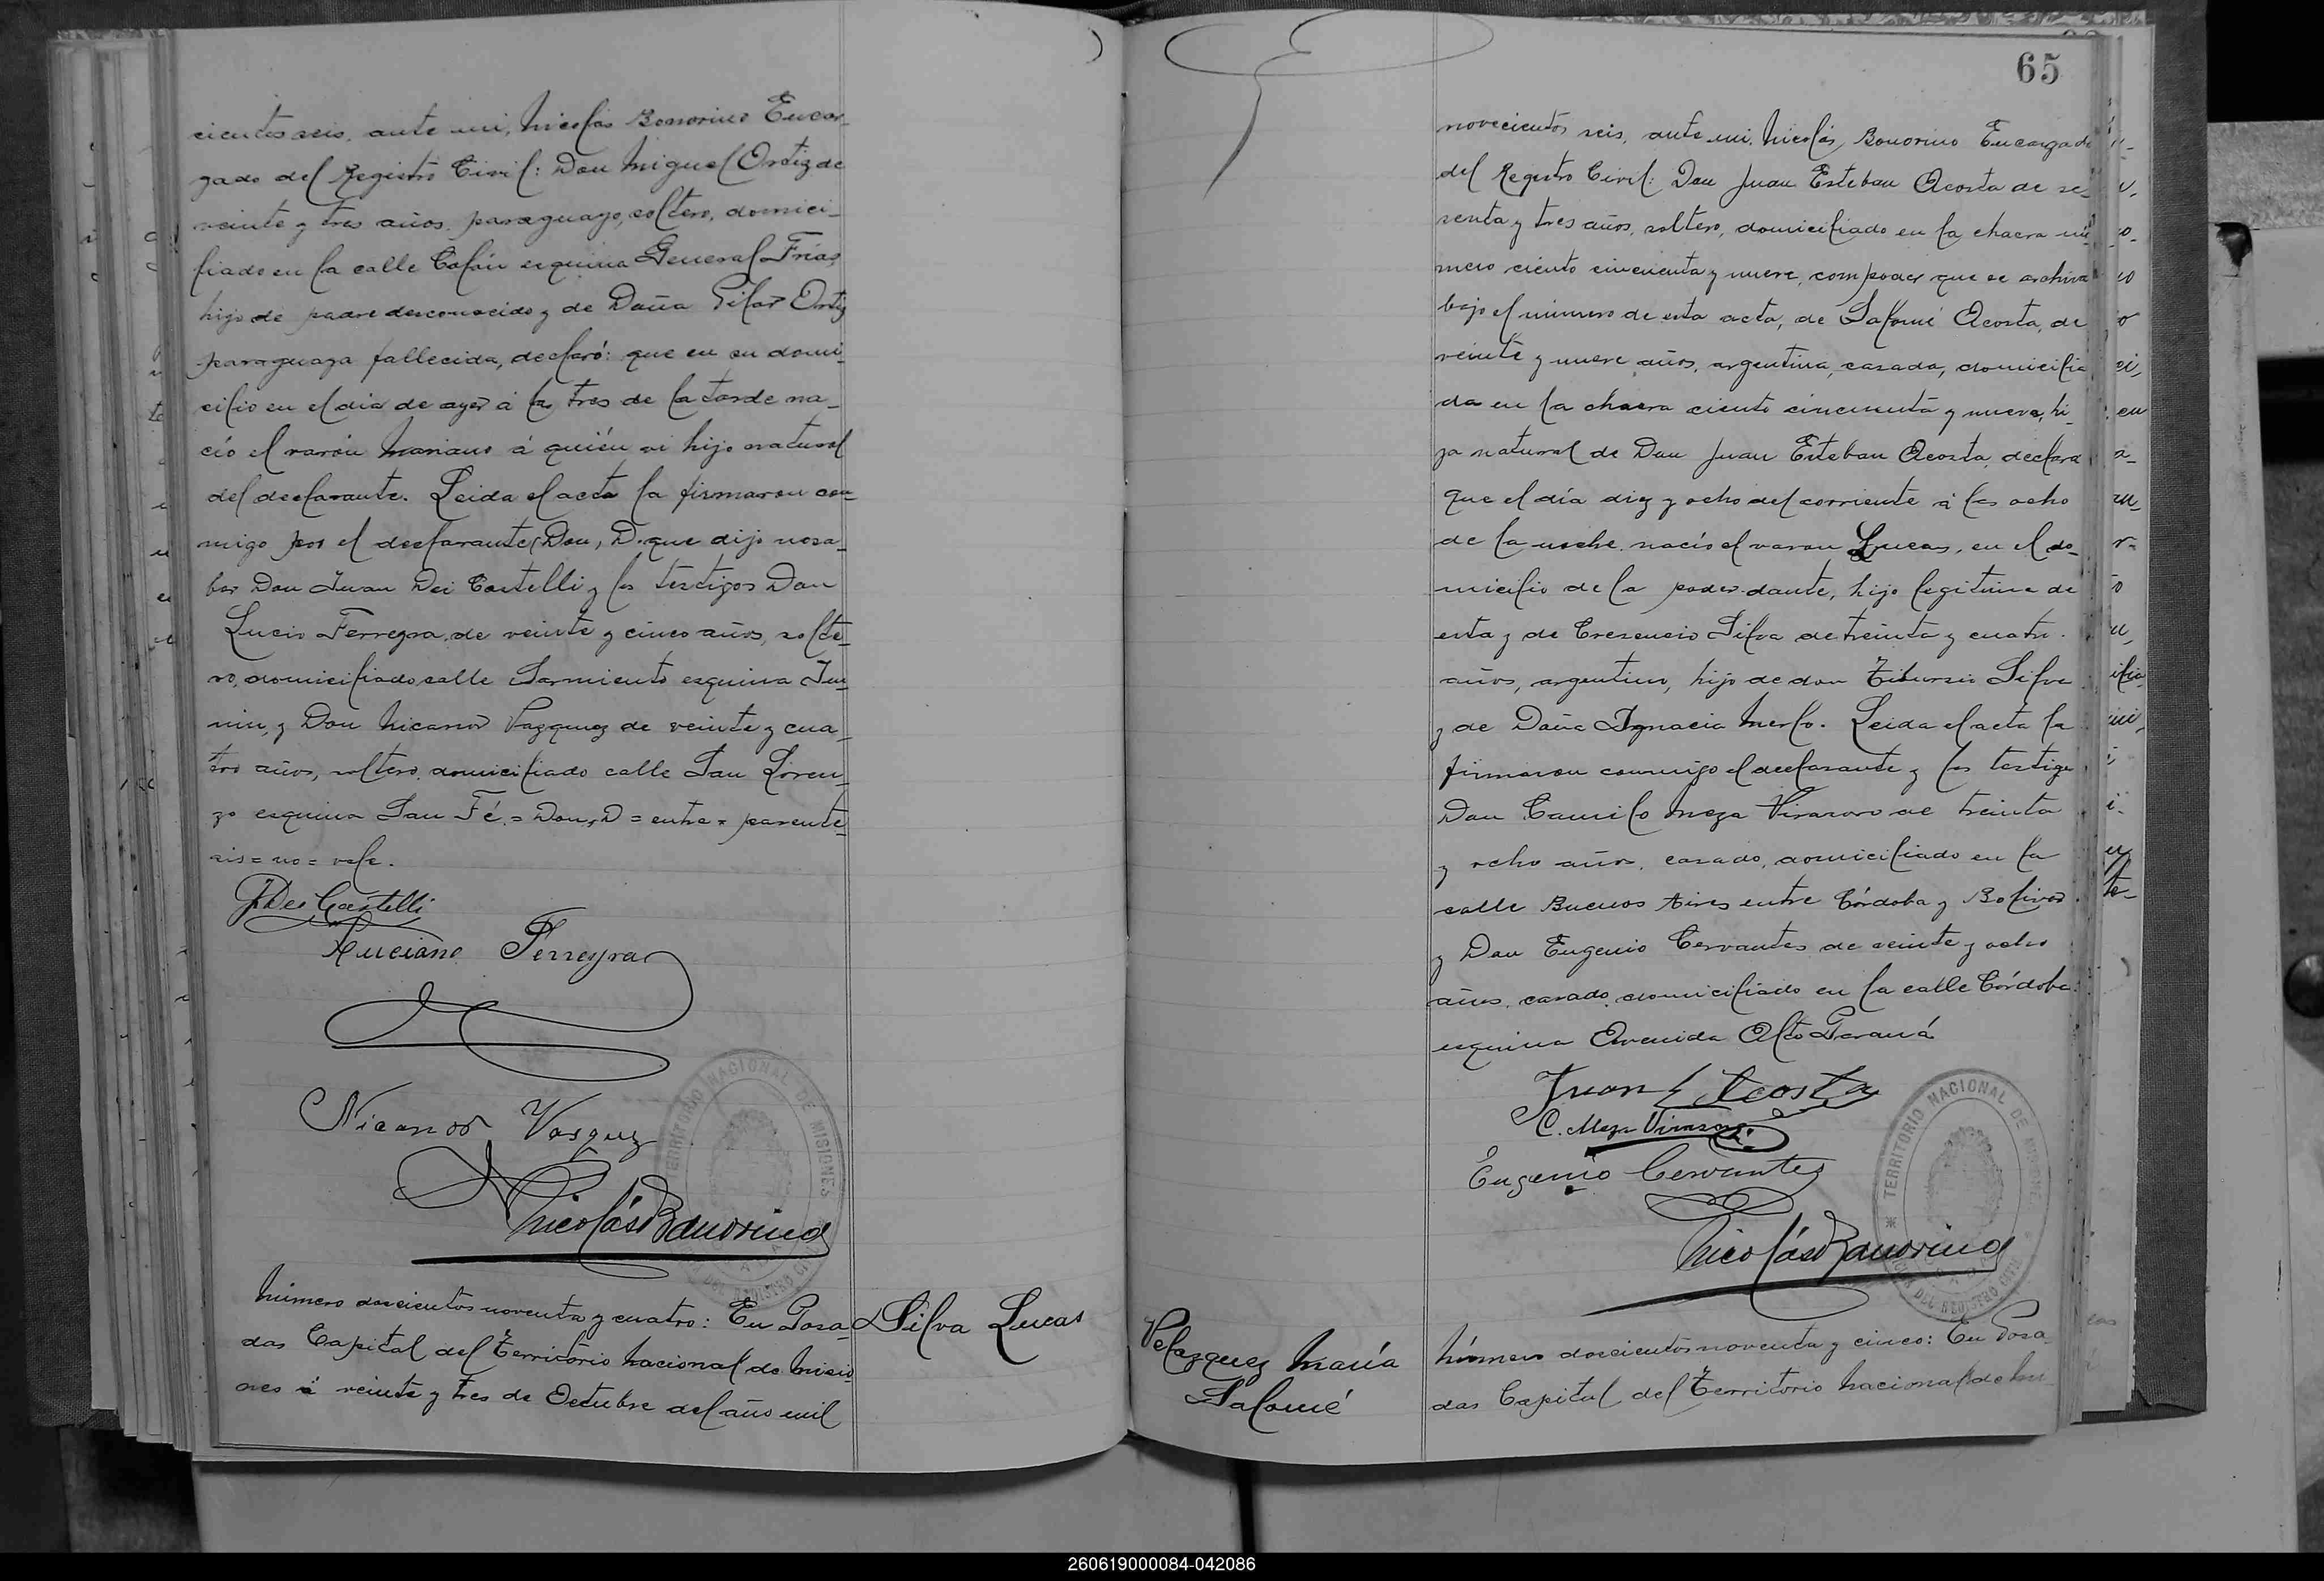 cientos seis, ante mi, Nicolás Bonorino Encar-
gado del Registro Civil: Don Miguel Ortiz de
veinte y tres años, paraguayo, soltero, domici-
liado en la calle Colón esquina General Frías,
hijo de padre desconocido y de Doña Pilar Ortiz
paraguaya fallecida, declaró: que en su domi-
cilio en el día de ayer á las tres de la tarde na-
ció el varón Mariano á quién vi hijo natural
del declarante. Leida el acta la firmaron con-
migo por el declarante (Don, D. que dijo no sa-
ber Don Juan Dei Castelli y los testigos Don
Lucio Ferreyra, de veinte y cinco años, solte-
ro, domiciliado calle Sarmiento esquina Ju-
nin, y Don Nicanor Vazquez de veinte y cua-
tro años, soltero, domiciliado calle San Loren-
zo esquina San Fé. = Don, D = entre = parente-
sis = no = vale.
J. Dei Castelli
Luciano Ferreyra
Nicanor Vasquez
Nicolás Bonorino
TERRITORIO NACIONAL DE MISIONES
DEL REGISTRO CIVIL
Número doscientos noventa y cuatro: En Posa-
das Capital del Territorio Nacional de Misio-
nes á veinte y tres de Octubre del año mil
Silva Lucas
65
novecientos seis, ante mi, Nicolás Bonorino Encargado
del Registro Civil: Don Juan Esteban Acosta de se-
senta y tres años, soltero, domiciliado en la chacra nú-
mero ciento cincuenta y nueve, com poder que se archiva
bajo el número de esta acta, de Salomé Acosta, de
veinte y nueve años, argentina, casada, domicilia
da en la chacra ciento cincuenta y nueve, hi-
ja natural de Don Juan Esteban Acosta, declara
que el día diez y ocho del corriente á las ocho
de la noche nació el varon Lucas, en el do-
micilio de la poder-dante, hijo legitimo de
esta y de Crescencio Silva de treinta y cuatro
años, argentino, hijo de don Tiburcio Silva
y de Doña Ignacia Merlo. Leida el acta la
firmaron conmigo el declarante y los testigos
Don Camilo Meza Virasoro de treinta
y ocho años, casado, domiciliado en la
calle Buenos Aires entre Córdoba y Bolivar
y Don Eugenio Cervantes de veinte y ocho
años, casado, domiciliado en la calle Córdoba
esquina Avenida Alto Paraná
Juan E Acosta
C. Meza Virasoro
Eugenio Cervantes
Nicolás Bonorino
TERRITORIO NACIONAL DE MISIONES
DEL REGISTRO CIVIL
Velazquez María
Salomé
Número doscientos noventa y cinco: En Posa-
das Capital del Territorio Nacional de Mi
260619000084-042086